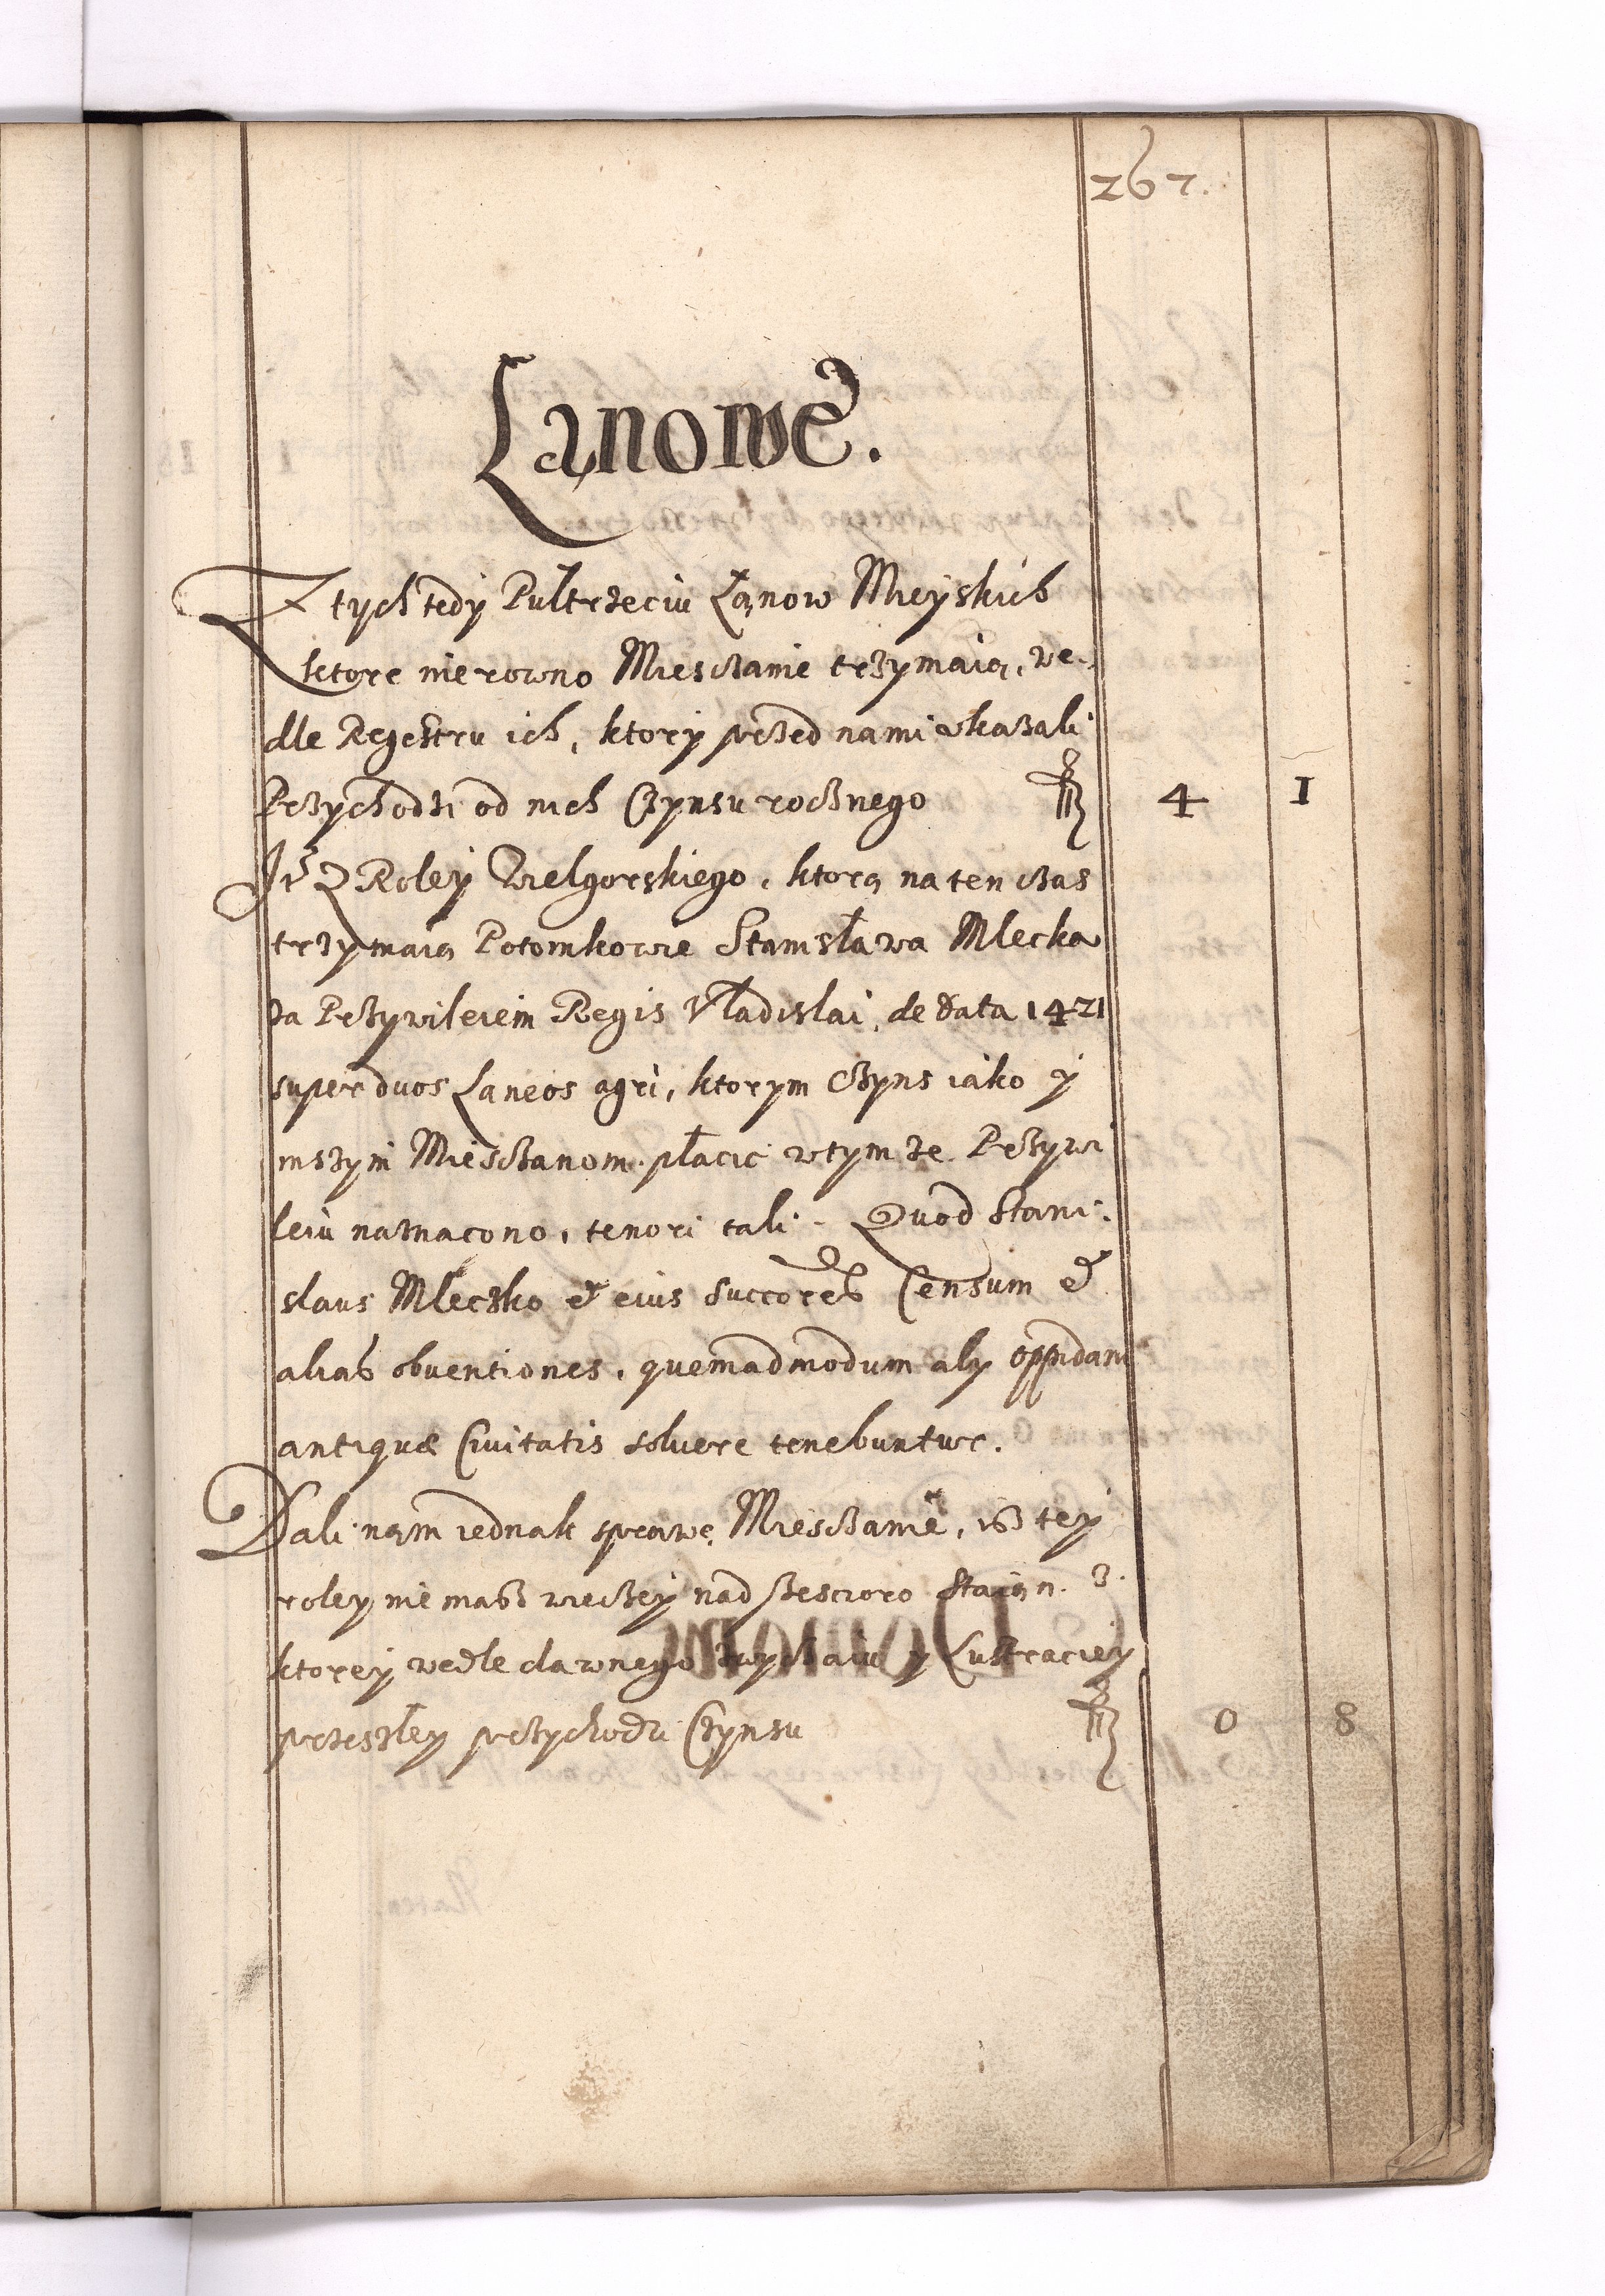 267.
Łanowe.
Z tych tedy Pułtrzeciu Łanow Mieyskich
ktore nierowno Miesczanie trzymaią, we-
dle Regestru ich, ktory przed nami vkazali
Przychodzi od nich Czynsu rocznego fl 4 1
It Z Roley Wielgorskiego, ktorą na ten czas
trzymaią Potomkowie Stanisława Mlecka
za Przywileiem Regis Vładislai, de data 1421
super duos Laneos agri, ktorym czyns iako y
inszym Miesczanom płacic w tymze Przywi
leiu naznacono, tenori tali - Quod Stani-
slaus Mleczko & eius succores Censum &
alias obuentiones, quemadmodum aly oppidani
antiquæ Ciuitatis soluere tenebuntur.
Dali nąm iednak sprawę Miesczanie, isz tey
roley nie masz wieczey nad szescioro staian. z
ktorey wedle dawnego zwyczaiu y Lustraciey
przeszłey przychodzi Czynsu fl 0 8